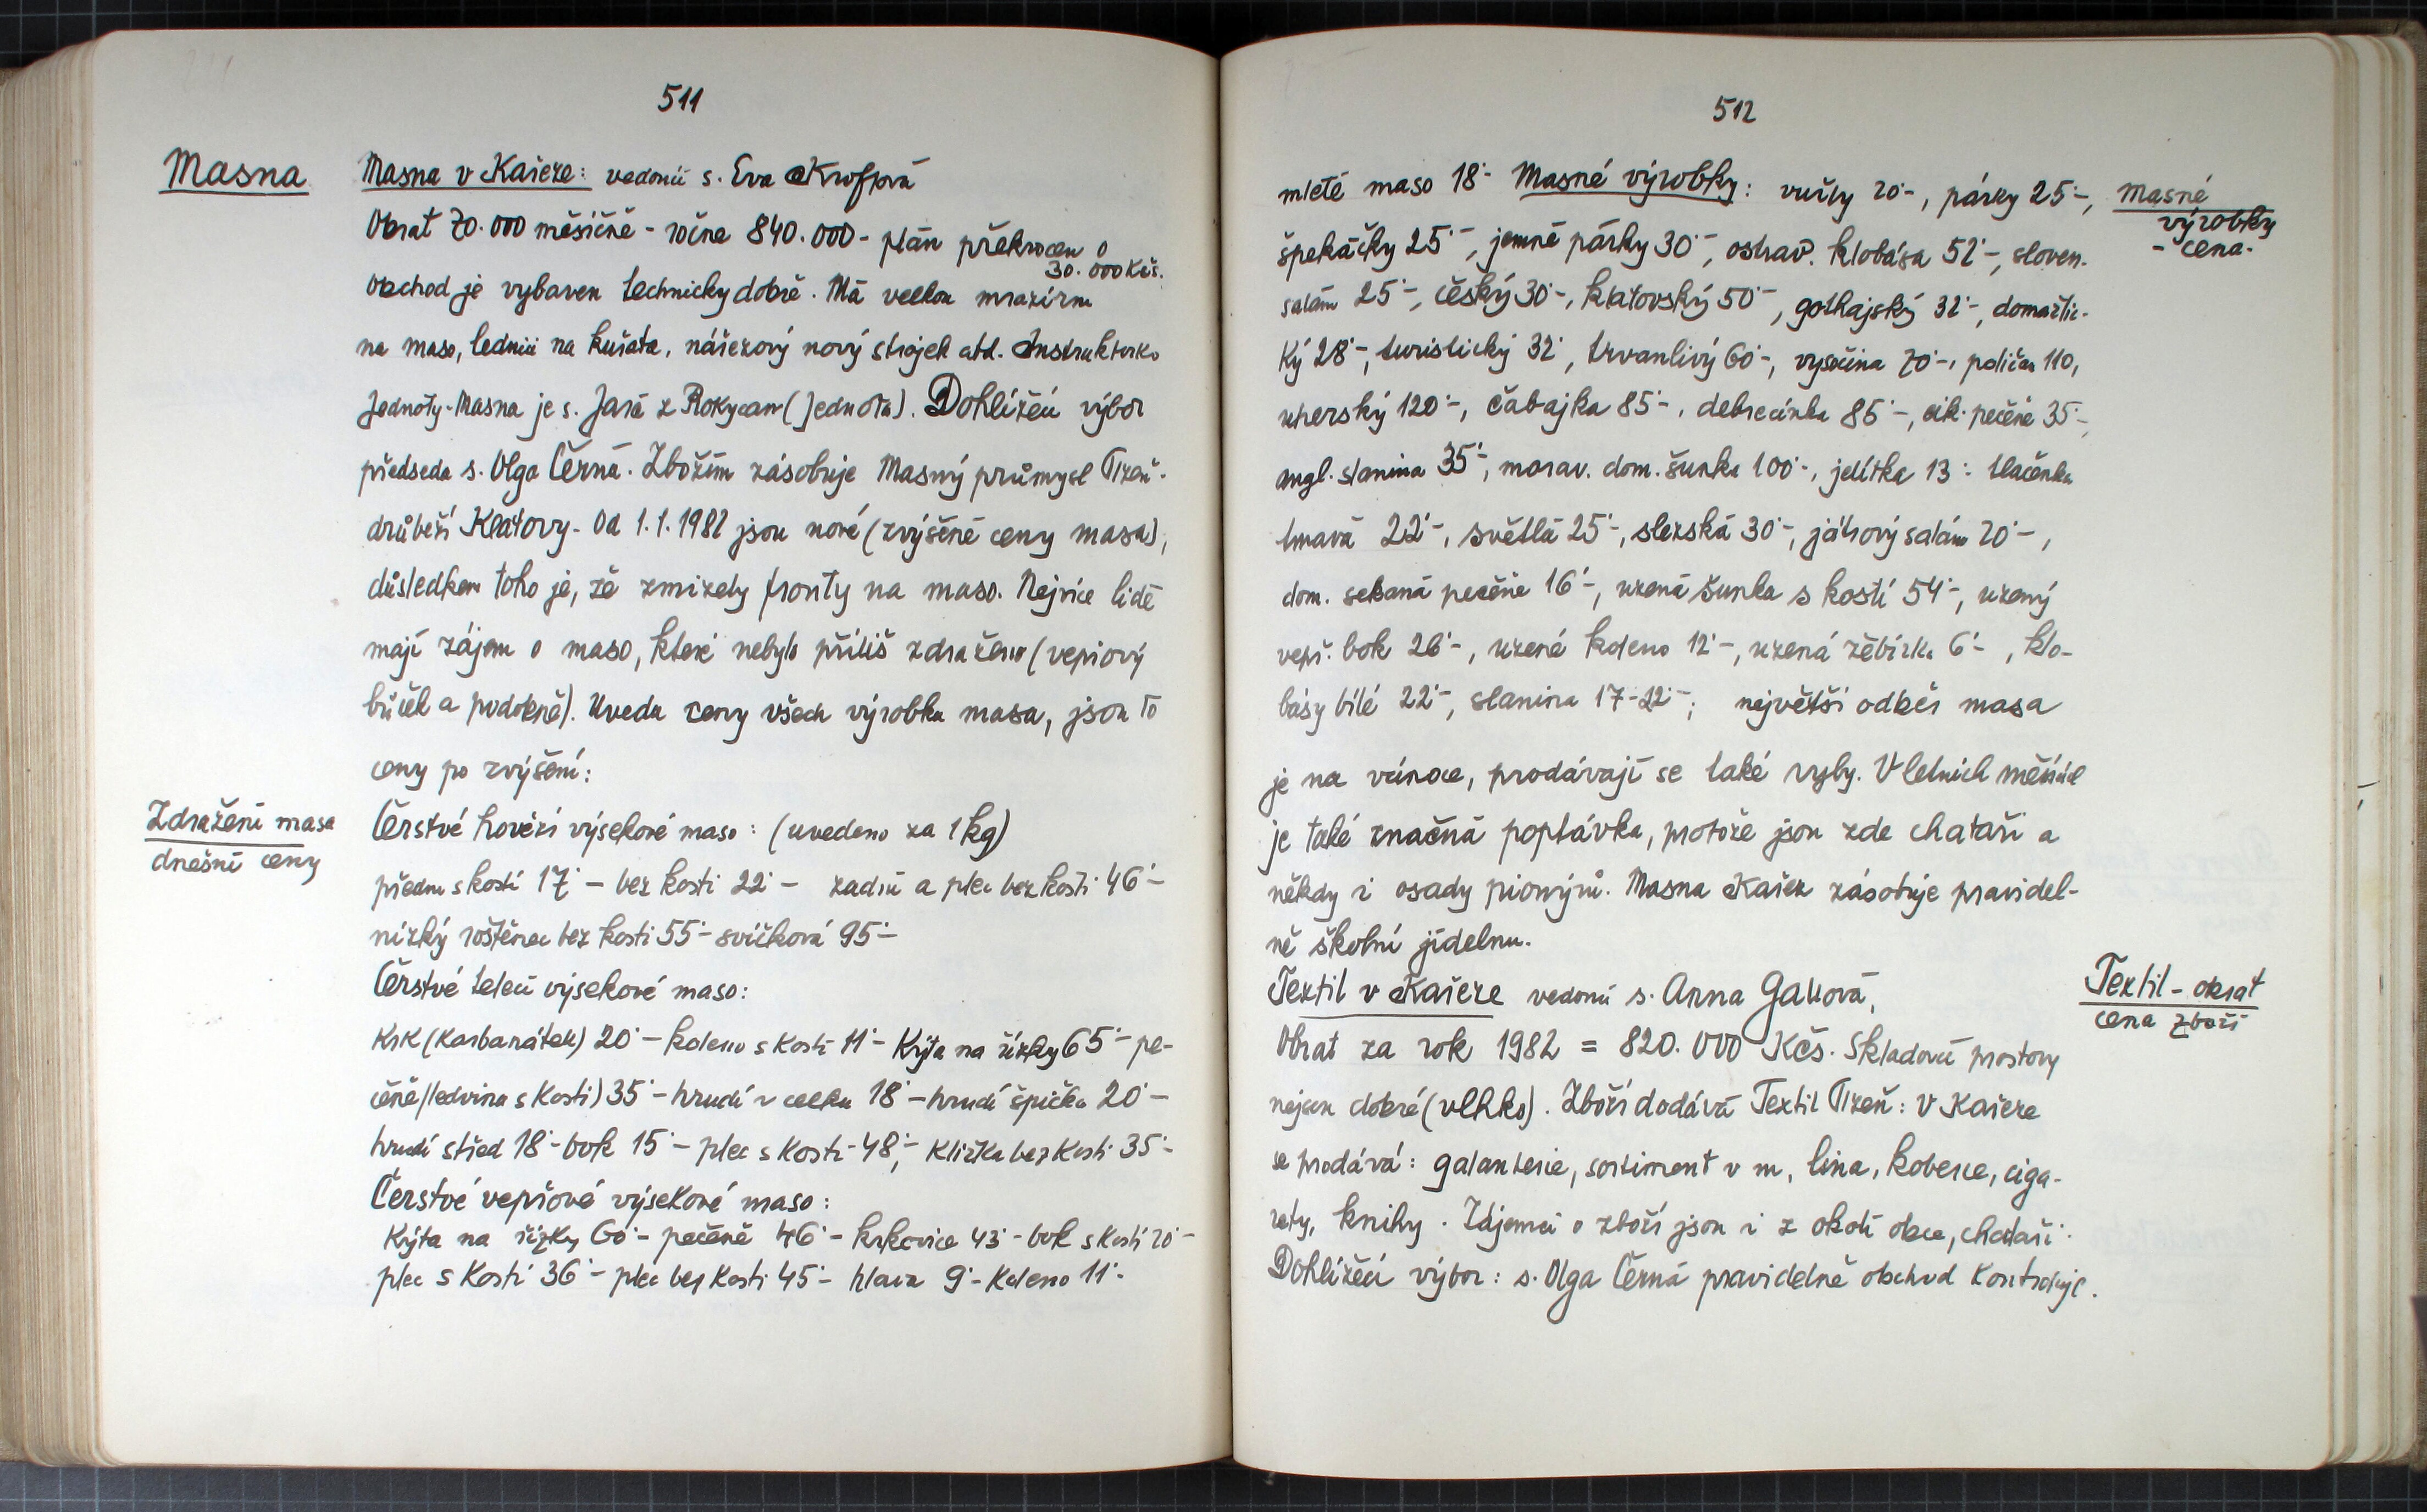 511
Masna
Masna v Kařeze: vedoucí s. Eva
Obrat 70.000 měsíčně - ročně 840.000 - plán překročen o
30.000 Kčs.
Obchod je vybaven technicky dobře. Má velkou mrazírnu
na maso, lednici na kuřata, nářezový nový strojek atd. Instruktorko
Jednoty-Masna je s. Jará z Rokycan (Jednota). Dohlížecí výbor
předseda s. Olga Černá. Zbožím zásobuje Masný průmysl Plzeň -
drůbeží Klatovy. Od 1.1.1982 jsou nové (zvýšené ceny masa),
důsledkem toho je, že zmizely fronty na maso. Nejvíce lidé
mají zájem o maso, které nebylo příliš zdraženo (vepřový
bůček a podobně). Uvedu ceny všech výrobku masa, jsou to
ceny po zvýšení:
Zdražení masa
dnešní ceny
Čerstvé hovězí výsekové maso: (uvedeno za 1 kg)
přední s kostí 17·- bez kosti 22·- zadní a plec bez kosti 46·-
nízký roštěnec bez kosti 55·- svíčková 95·-
Čerstvé telecí výsekové maso:
Krk (karbanátek) 20·- koleno s kostí 11·- Kýta na řízky 65·- pe-
čeně (ledvina s kostí) 35·- hrudí v celku 18·- hrudí špička 20·-
hrudí střed 18·- bok 15·- plec s kostí 48·-, kližka bez kosti 35·-
Čerstvé vepřové výsekové maso:
Kýta na řízky 60·- pečeně 46·- krkovice 43·- bok s kostí 20·-
plec s kostí 36·- plec bez kosti 45·- hlava 9·- koleno 11·-
512
mleté maso 18·- Masné výrobky: vuřty 20·-, párky 25·-,
masné
výrobky
- cena -
špekáčky 25·-, jemné párky 30·-, ostrav. klobása 52·-, sloven.
salám 25·-, český 30·-, klatovský 50·-, gothajský 32·-, domažlic-
ký 28·-, turistický 32·, trvanlivý 60·-, vysočina 70·-, poličan 110,
uherský 120·-, čabajka 85·-, debrecínka 85·-, cik. pečeně 35·-,
angl. slanina 35·-, morav. dom. šunka 100·-, jelítka 13·- tlačenka
tmavá 22·-, světlá 25·-, slezská 30·-, játrový salám 20·-,
dom. sekaná pečeně 16·-, uzená šunka s kostí 54·-, uzený
vepř. bok 26·-, uzené koleno 12·-, uzená žebírka 6·-, klo-
básy bílé 22·-, slanina 17-22·-; největší odběr masa
je na vánoce, prodávají se také ryby. V letních měsících
je také značná poptávka, protože jsou zde chataři a
někdy i osady pionýrů. Masna Kařez zásobuje pravidel-
ně školní jídelnu.
Textil v Kařeze vedoucí s. Anna Gallová,
Textil - obrat
cena zboží
Obrat za rok 1982 = 820.000 Kčs. Skladovací prostory
nejsou dobré (vlhko). Zboží dodává Textil Plzeň: V Kařeze
se prodává: galanterie, sortiment v m, lina, koberce, ciga-
rety, knihy. Zájemci o zboží jsou i z okolí obce, chataři.
Dohlížecí výbor: s. Olga Černá pravidelně obchod kontroluje.